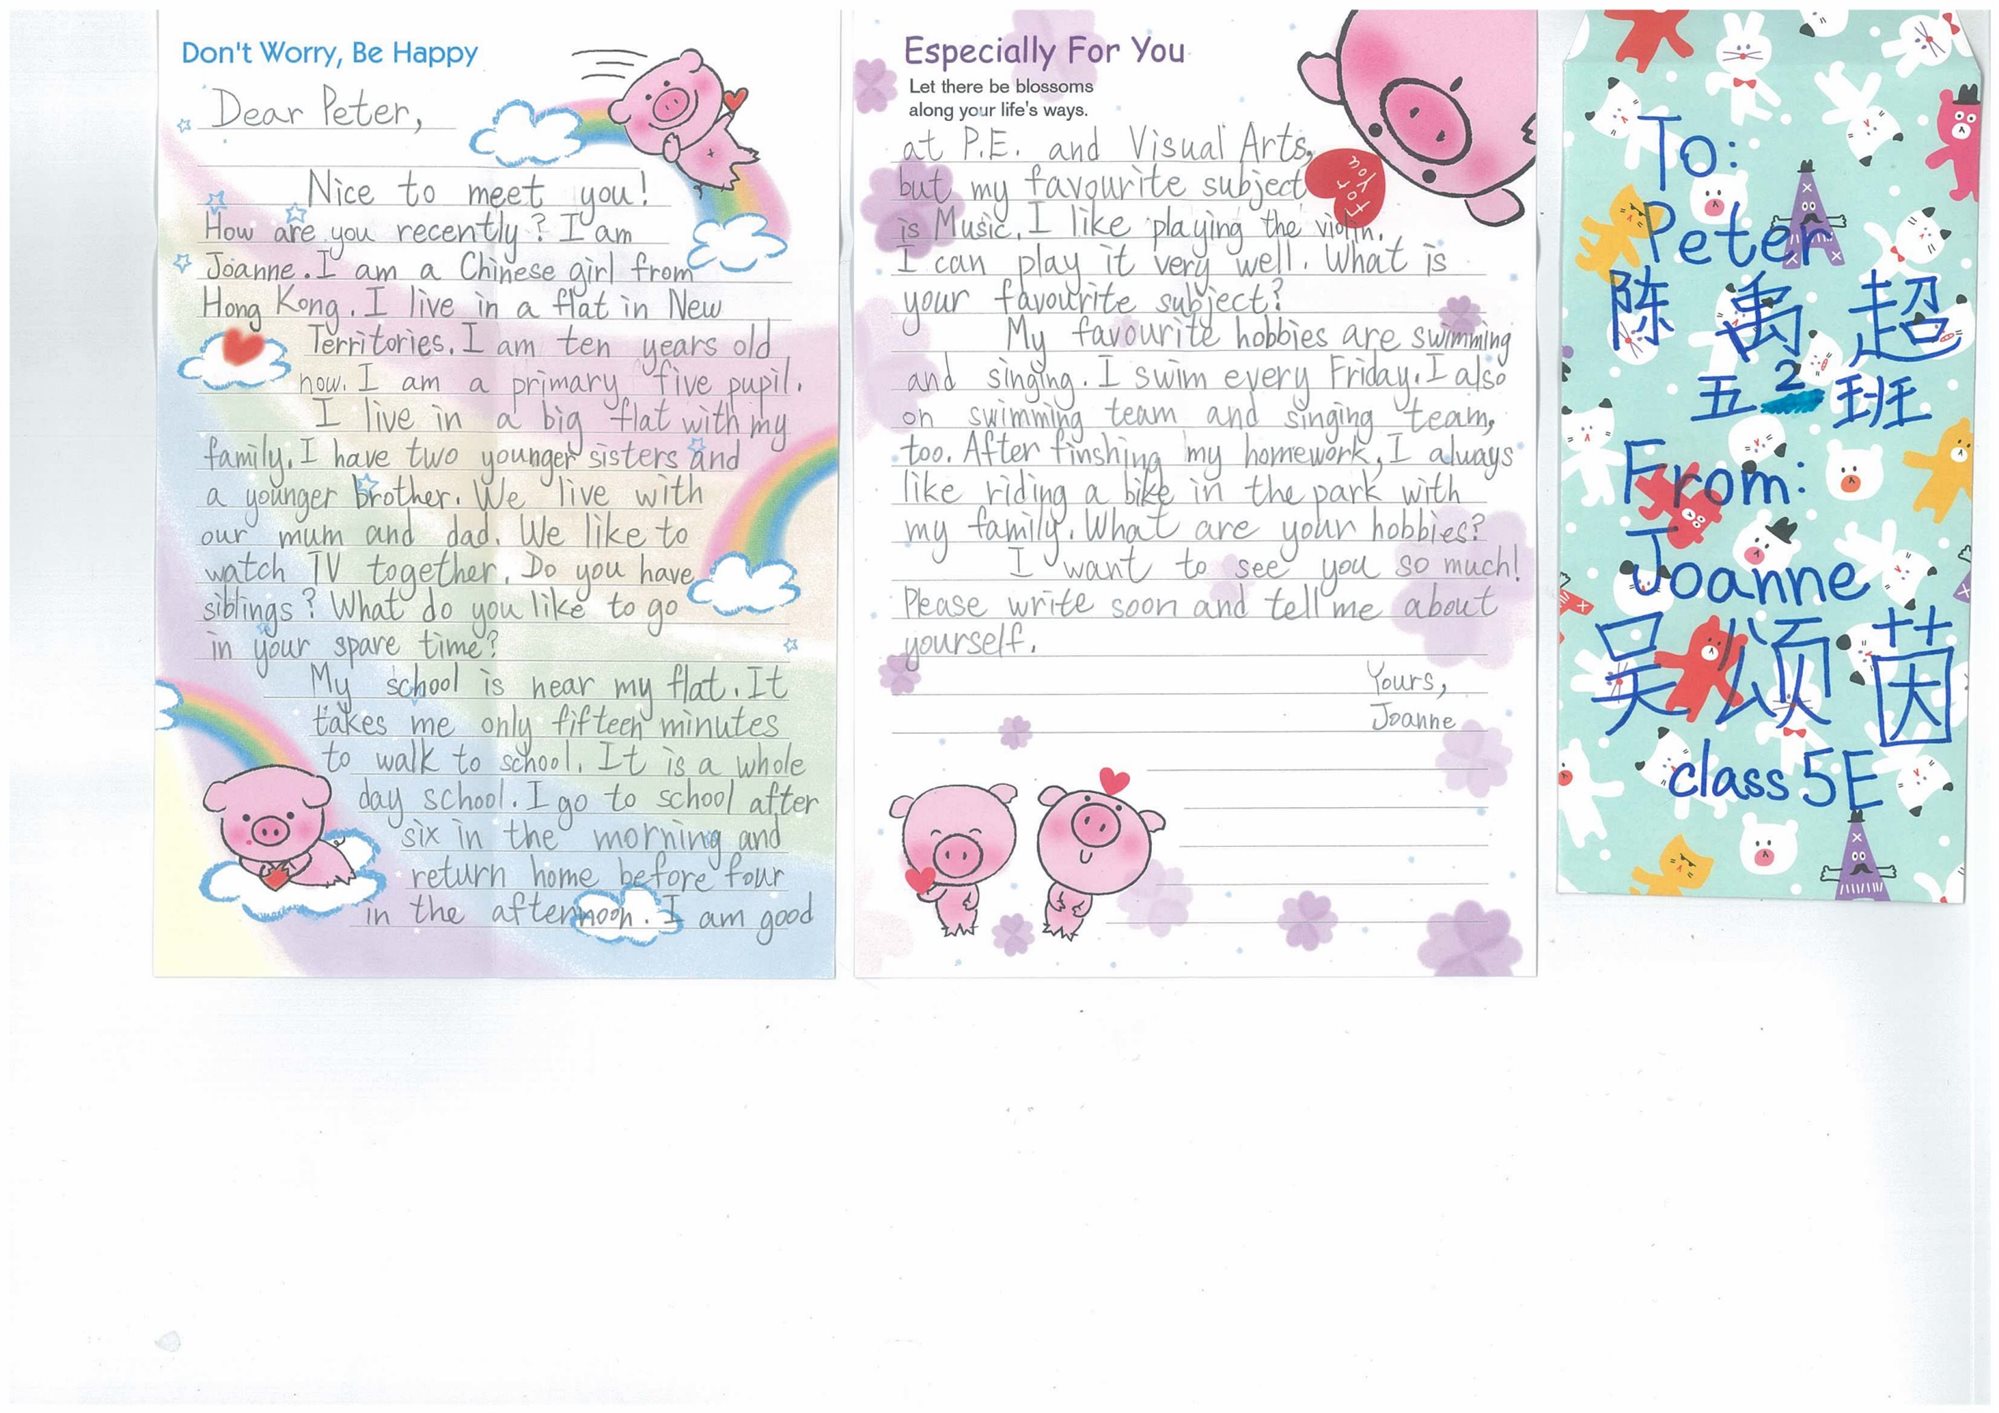 Don't Worry, Be Happy
Dear Peter,
Nice to meet you!
How are you recently? I am
Joanne. I am a Chinese girl from
Hong Kong. I live in a flat in New
Territories. I am ten years old
now. I am a primary five pupil.
I live in a big flat with my
family. I have two younger sisters and
a younger brother. We live with
our mum and dad. We like to
watch TV together. Do you have
siblings? What do you like to go
in your spare time?
My school is near my flat. It
takes me only fifteen minutes
to walk to school. It is a whole
day school. I go to school after
six in the morning and
return home before four
in the afternoon. I am good
Especially For You
Let there be blossoms
along your life's ways.
at P.E. and Visual Arts,
but my favourite subject
is Music. I like playing the violin.
I can play it very well. What is
your favourite subject?
My favourite hobbies are swimming
and singing. I swim every Friday. I also
on swimming team and singing team,
too. After finshing my homework, I always
like riding a bike in the park with
my family. What are your hobbies?
I want to see you so much!
Please write soon and tell me about
yourself.
Yours,
Joanne
For
you
To:
Peter
陈禹超
五2班
From:
Joanne
吴颂茵
class 5E